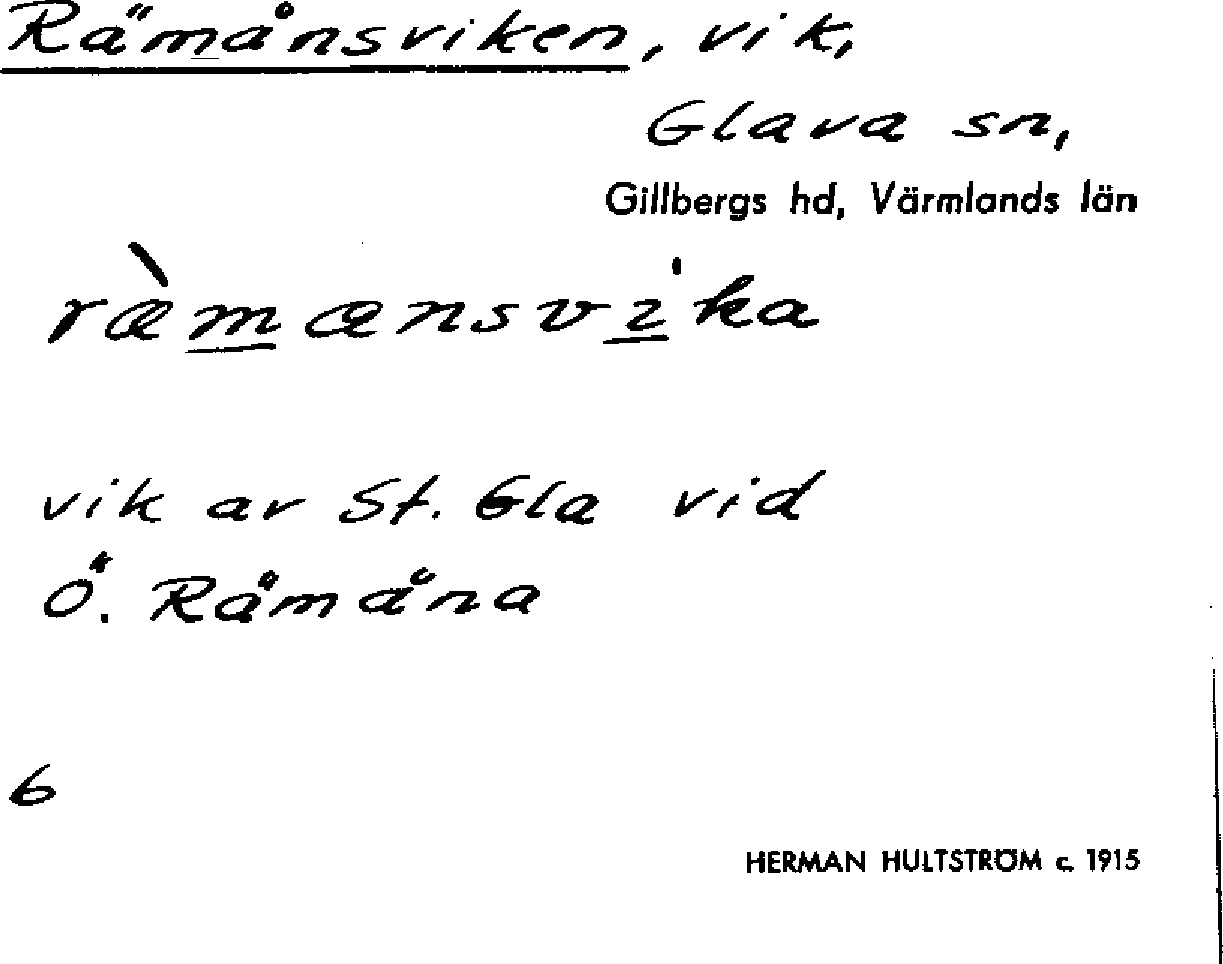 Rämånsviken, vik,
Glava sn,
Gillbergs hd, Värmlands län
ræ̀mansvi̍ka
vik av St. Gla vid
Ö. Råmåna
6
HERMAN HULTSTRÖM c. 1915